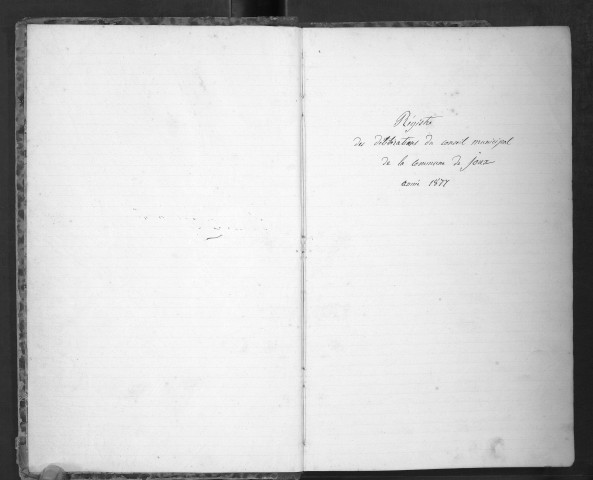 Régistre
des délibérations du conseil municipal
de la commune de Joux
année 1877